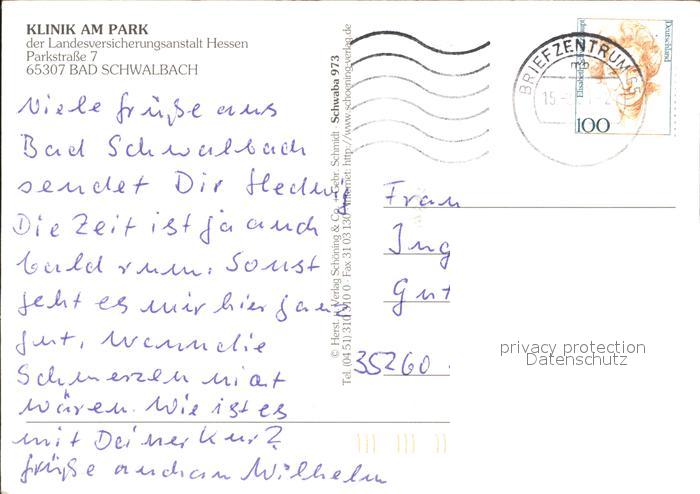 KLINIK AM PARK
der Landesversicherungsanstalt Hessen
Parkstraße 7
65307 BAD SCHWALBACH
Viele Grüße aus
Bad Schwalbach
sendet Dir Hedwi
Die Zeit ist ja auch
bald rum. Sonst
geht es mir hier ganz
gut, wenn die
Schmerzen nicht
wären. Wie ist es
mit Deiner Kur?
Grüße auch an Wilhelm
© Herst. u. Verlag Schöning & Co. + Gebr. Schmidt · Schwaba 973
Tel. (04 51) 31 03 10 0 · Fax 31 03 130 · Internet: http://www.schoening-verlag.de
BRIEFZENTRUM 65
mb
15
Deutschland
Elisabeth
100
Frau
Ing
Gut
35260
privacy protection
Datenschutz